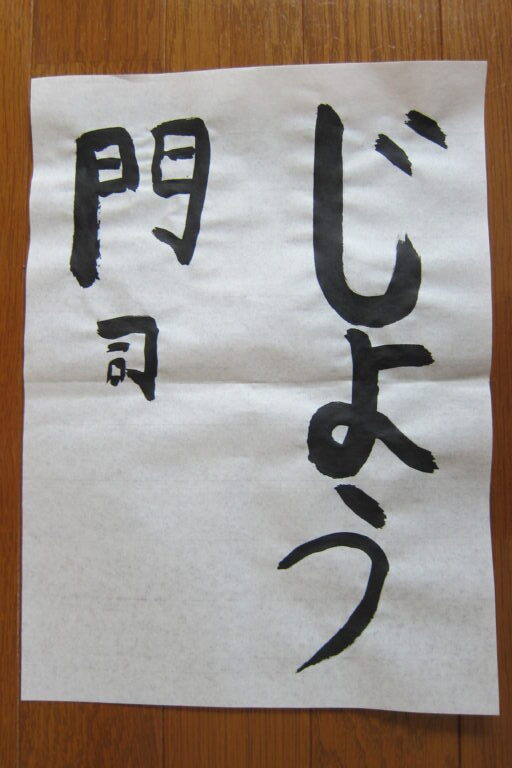 じよう
門司